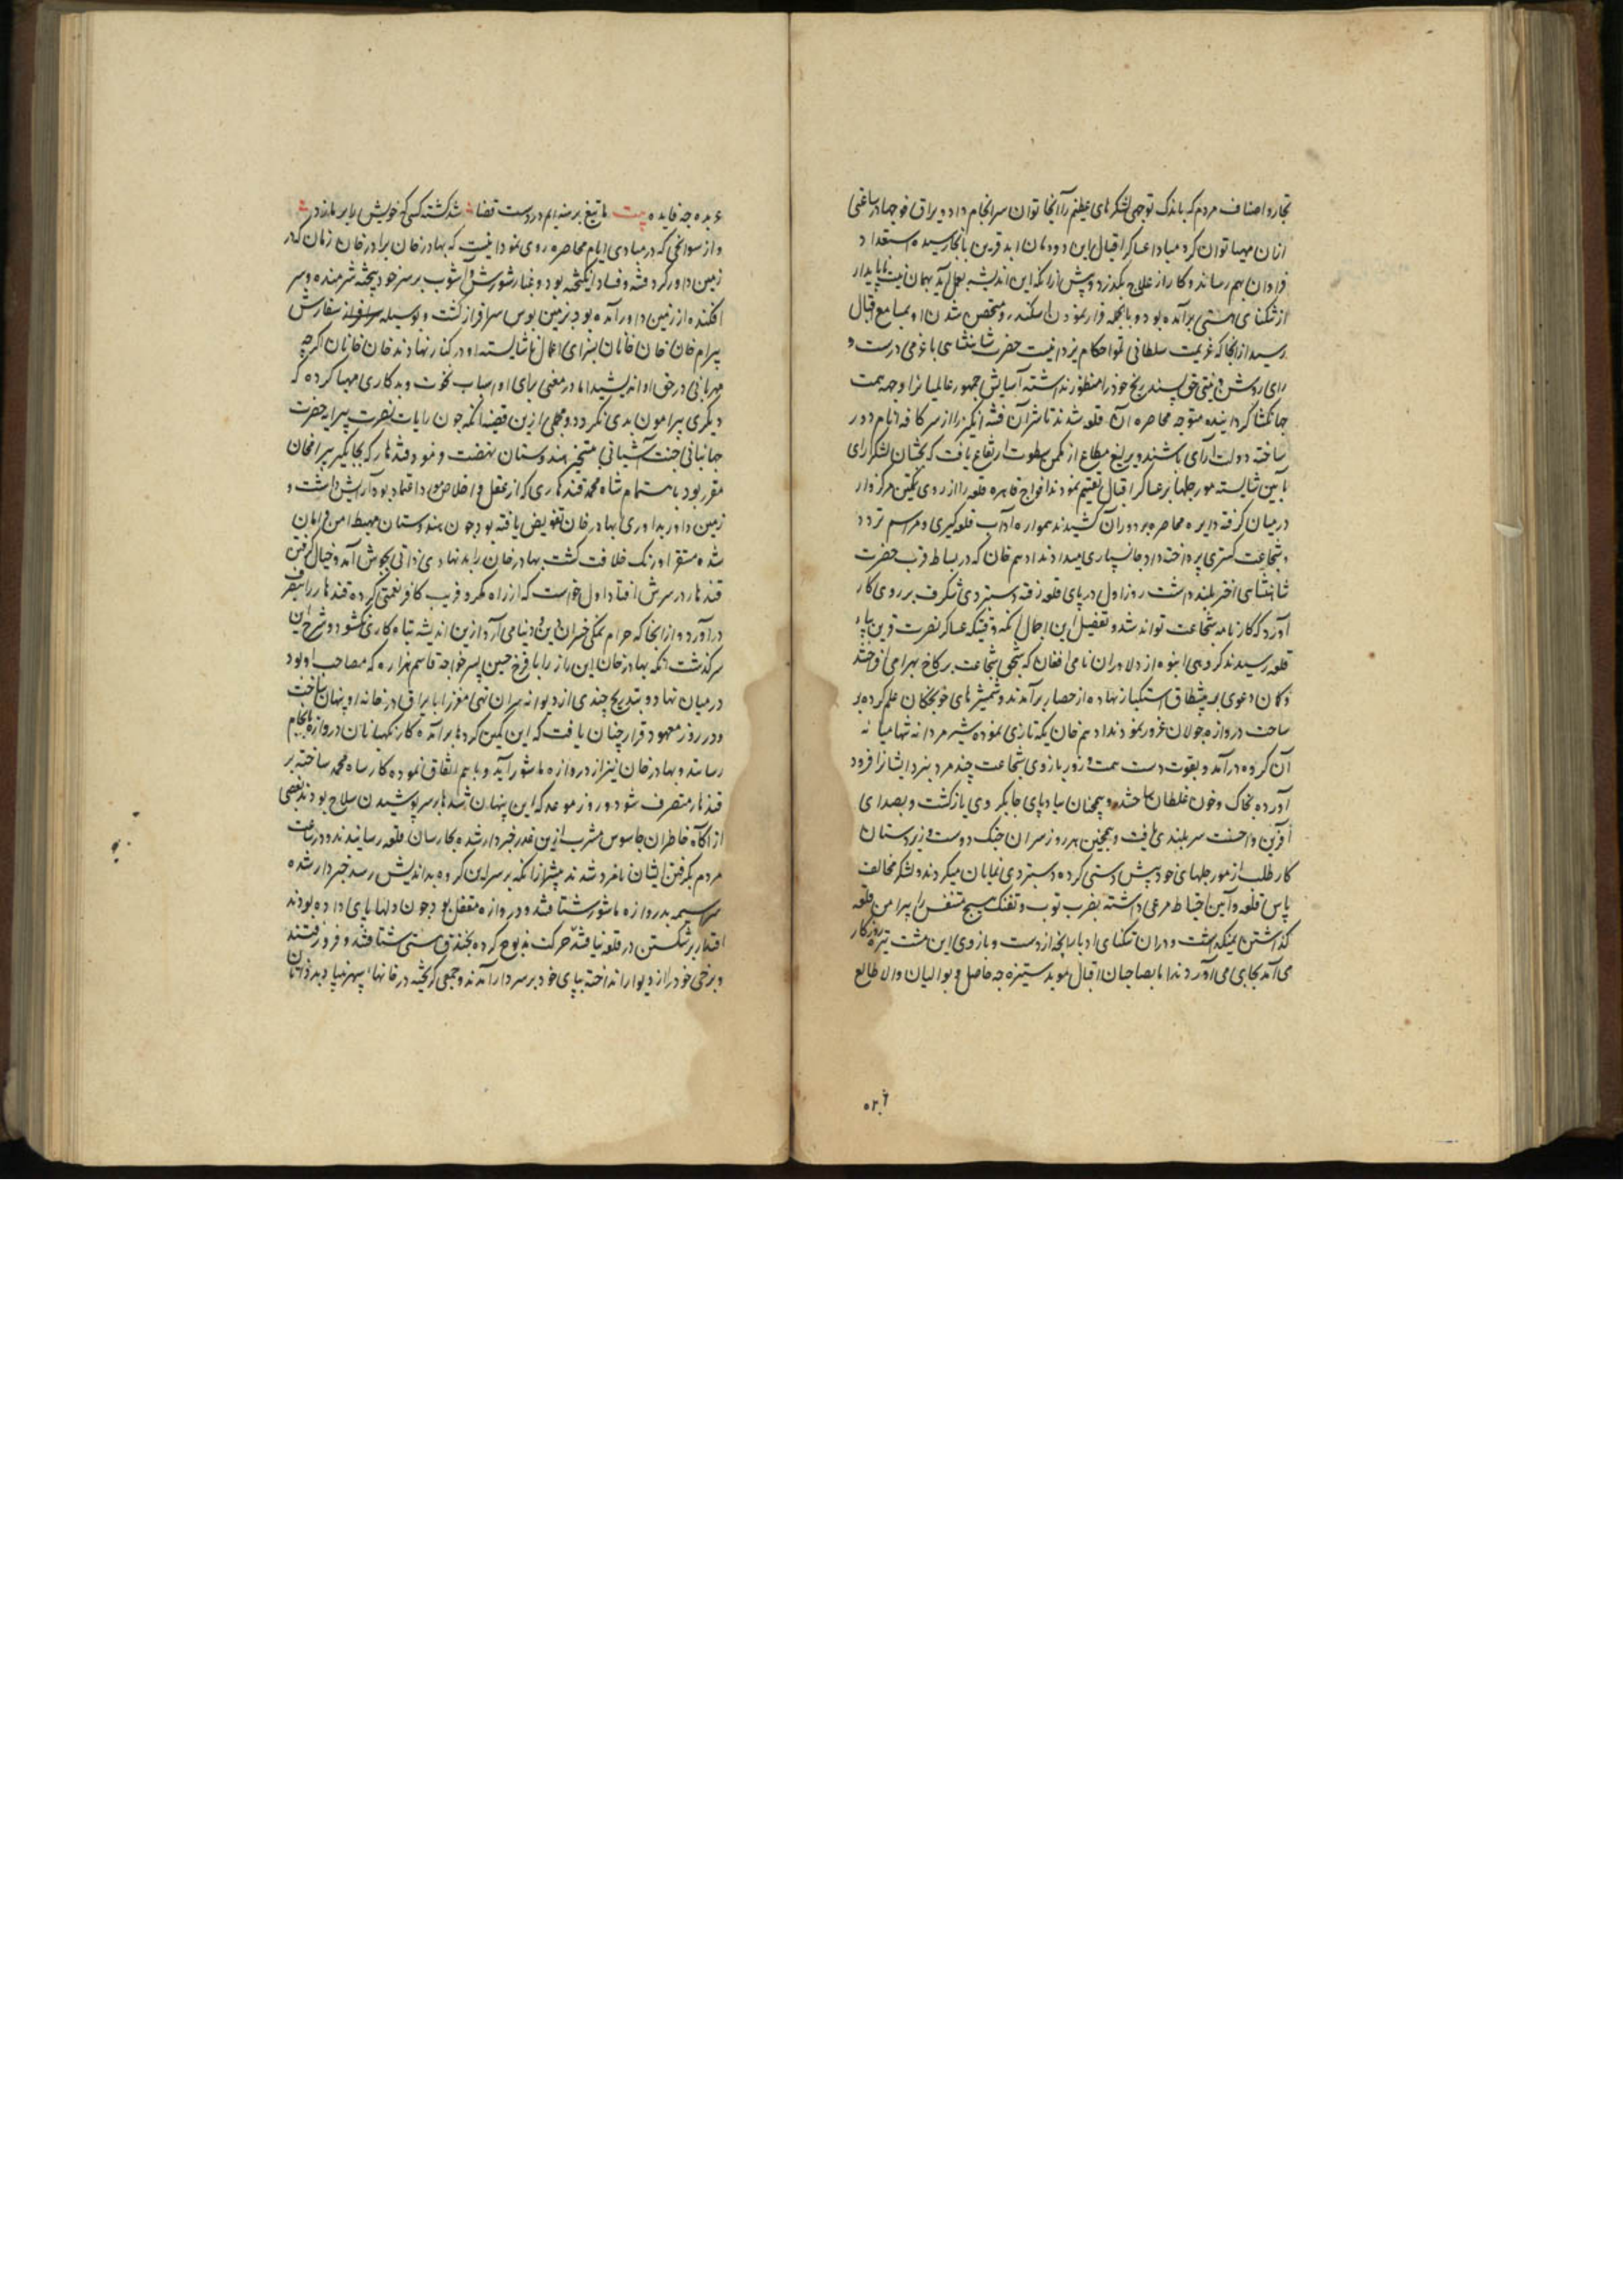 تجار و اصناف مردم که باندک توجهی لشکرهای عظیم را آنجا توان سرانجام داد و یراق فوجها در ساعتی
ازان مهیا توان کرد مبادا عساکر اقبال این دودمان ابد قرین بانجا رسیده استعداد
فراوان بهم رساند و کار از علاج بگذرد و پیش ازانکه این اندیشه بعمل آید بهمان نیت ناپایدار
از تنگنای هستی برآمده بود و بالجمله فرار نمودن اسکندر و متحصن شدن او بمسامع اقبال
رسید ازانجا که عزیمت سلطانی توام احکام یزدانیست حضرت شاهنشاهی با عزمی درست و
رای روشن و نیتی حق پسند رنج خود را منظور نداشته آسایش جمهور عالمیانرا وجهه همت
جهانگشا گردانیده متوجه محاصره آن قلعه شدند تا شر آن فتنه انگیز را از سر کافه انام دور
ساخته دولت آرای باشند و یرلیغ مطاع از مکمن سطوت ارتفاع یافت که بخشیان لشکر آرای
بآیین شایسته مورچلها بر عساکر اقبال تقسیم نمودند افواج قاهره قلعه را از روی تمکین مرکزوار
درمیان گرفته دایره محاصره بر دور آن کشیدند همواره آداب قلعه گیری و مراسم تردد
و شجاعت گستری پرداخته داد جانسپاری میدادند ادهم خان که در بساط قرب حضرت
شاهنشاهی اختر بلند داشت روز اول در پای قلعه رفته دستبردی شگرف بر روی کار
آورد که کارنامه شجاعت تواند شد و تفصیل این اجمال آنکه وقتیکه عساکر نصرت قرین بپای
قلعه رسیدند گروهی انبوه از دلاوران نامی افغان که سنجق شجاعت بر کاخ بهرام می افراختند
دکان دعوی بر پیشطاق استکبار نهاده از حصار برآمدند و شمشیرهای خونچکان علم کرده بر
ساحت دروازه جولان غرور نمودند ادهم خان یکه تازی نموده شیر مردانه تنها میانه
آن گروه درآمد و بقوت دست همت و زور بازوی شجاعت چند مرد نبرد ایشانرا فرود
آورده بخاک و خون غلطان ساخت و همچنان بپادپای جابکروی بازگشت و بصدای
آفرین و احسنت سربلندی یافت و همچنین هر روز سران جنگ دوست و زبردستان
کار طلب از مورچلهای خود پیش دستی کرده دستبردی نمایان میکردند و لشکر مخالف
پاس قلعه و آیین احتیاط مرعی داشته بضرب توپ و تفنگ هیچ متنفس را پیرامن قلعه
گذاشتن نمیگذاشت و دران تنگنای ادبار انچه از دست و بازوی این مشت تیره روزگار
می آمد بجای می آوردند اما بصاحبان اقبال موید ستیزه چه حاصل و بوالیان والا طالع
عربده چه فایده بیت ما تیغ برهنه ایم در دست قضا شد کشته کسی که خویش را بر ما زد
و از سوانحی که در مبادی ایام محاصره روی نمود انیست که بهادر خان برادر خان زمان که در
زمین داور گرد فتنه و فساد انگیخته بود و غبار شورش و آشوب بر سر خود بیخته شرمنده و سر
افکنده از زمین داور آمده بود بزمین بوس سرافراز گشت و بوسیله سفارش
بیرام خان خان خانان بسزای اعمال شایسته او در کنار نهادند خان خانان اگرچه
مهربانی در حق او اندیشید اما در معنی برای او اسباب نخوت و بدکاری مهیا کرد که
دیگری پیرامون بدی نگردد و مجملی ازین قضیه آنکه چون رایات نصرت پیرایه حضرت
جهانبانی جنت آشیانی بتسخیر هندوستان نهضت فرمود قندهار که بجایگیر بیرام خان
مقرر بود باهتمام شاه محمد قندهاری که از عقل و اخلاص او اعتماد بود آرایش داشت و
زمین داور بداوری بهادر خان تفویض یافته بود چون هندوستان مهبط امن و امان
شده مستقر اورنگ خلافت گشت بهادر خان را بدنهادی ذاتی بجوش آمد و خیال گرفتن
قندهار در سرش افتاد اول خواست که از راه مکر و فریب کافر نعمتی کرده قندهار را بتصرف
درآورد و ازانجا که حرام نمکی خسران دین و دنیا می آرد ازین اندیشه تباه کاری نگشود و شرح این
سرگذشت آنکه بهادر خان این راز را با فرخ حسین پسر خواجه قاسم هزاره که مصاحب او بود
درمیان نهاد و بتدریج چندی از دیوانه سران تهی مغز را با یراق در خانه او پنهان ساخت
و در روز معهود قرار چنان یافت که این کمین کردها برآمده کار نگهبانان دروازه بانجام
رسانند و بهادر خان نیز از دروازه ماشور آید و باهم اتفاق نموده کار شاه محمد ساخته بر
قندهار متصرف شود و روز موعد که این پنهان شدها بر سر پوشیدن سلاح بودند بعضی
از آگاه خاطران جاسوس مشرب ازین غدر خبردار شده بکارسان قلعه رسانیدند و در ساعت
مردم بگرفتن ایشان نامزد شدند پیشتر ازانکه بر سر این گروه بداندیش رسد خبردار شده
سراسیمه بدروازه ماشور شتافتند و دروازه مقفل بود چون دلها بپای داده بودند
اقتدار بر شکستن در قلعه نیافتند حرکت مذبوح کرده بخندق پستی شتافتند و فرو رفتند
و برخی خود را از دیوار انداخته بپای خود بر سر دار آمدند و جمعی گریخته در خانها پهنر پناه بردند